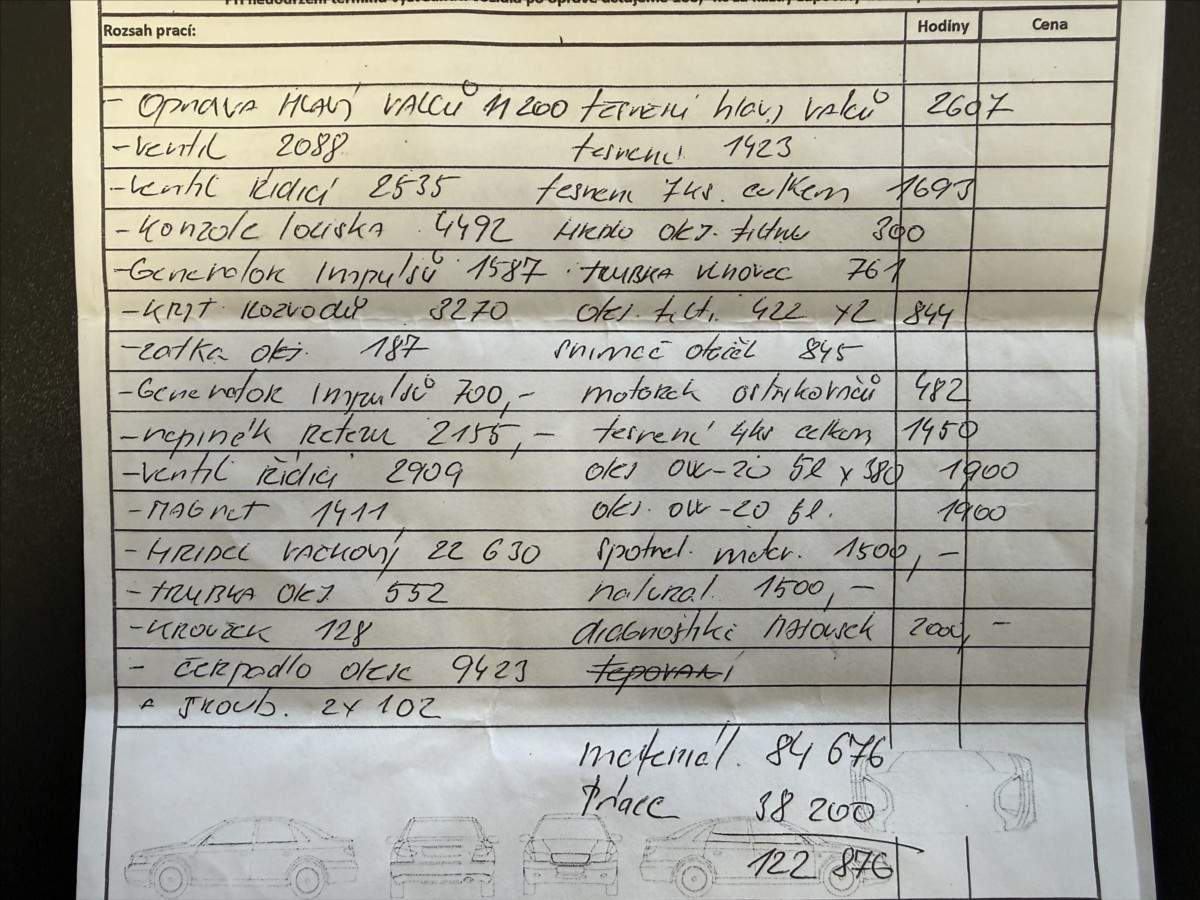 Rozsah prací: Hodiny Cena
- OPRAVA HLAVY VALCŮ 11200 těsnení hlavy valců 2607
- Ventil 2088 těsnení 1423
- Ventil řídicí 2535 těsnení 7ks. celkem 1693
- Konzole ložiska 4492 Hrdlo olej. filtru 300
- Generator Impulsů 1587 . TRUBKA vlnovec 761
- KRYT ROZVODŮ 3270 olej. filt. 422 x2 844
- zatka olej. 187 snímač otáček 845
- Generator Impulsů 700,- motorek ostřikovačů 482
- napinák řetezu 2155,- těsnení 4ks celkem 1450
- Ventil řídící 2909 olej 0W-20 5l x 380 1900
- MAGnet 1411 olej. 0W-20 5l. 1900
- HRIDEL VAČKOVÝ 22 630 spotřeb. mater. 1500,-
- TRUBKA OLEJ. 552 natural. 1500,-
- KROUŽEK 128 diagnostika MATOUŠEK 2000,-
- ČERPADLO oleje 9423 tepování
- ŠROUB. 2x 102
materiál. 84 676
Práce 38 200
122 876